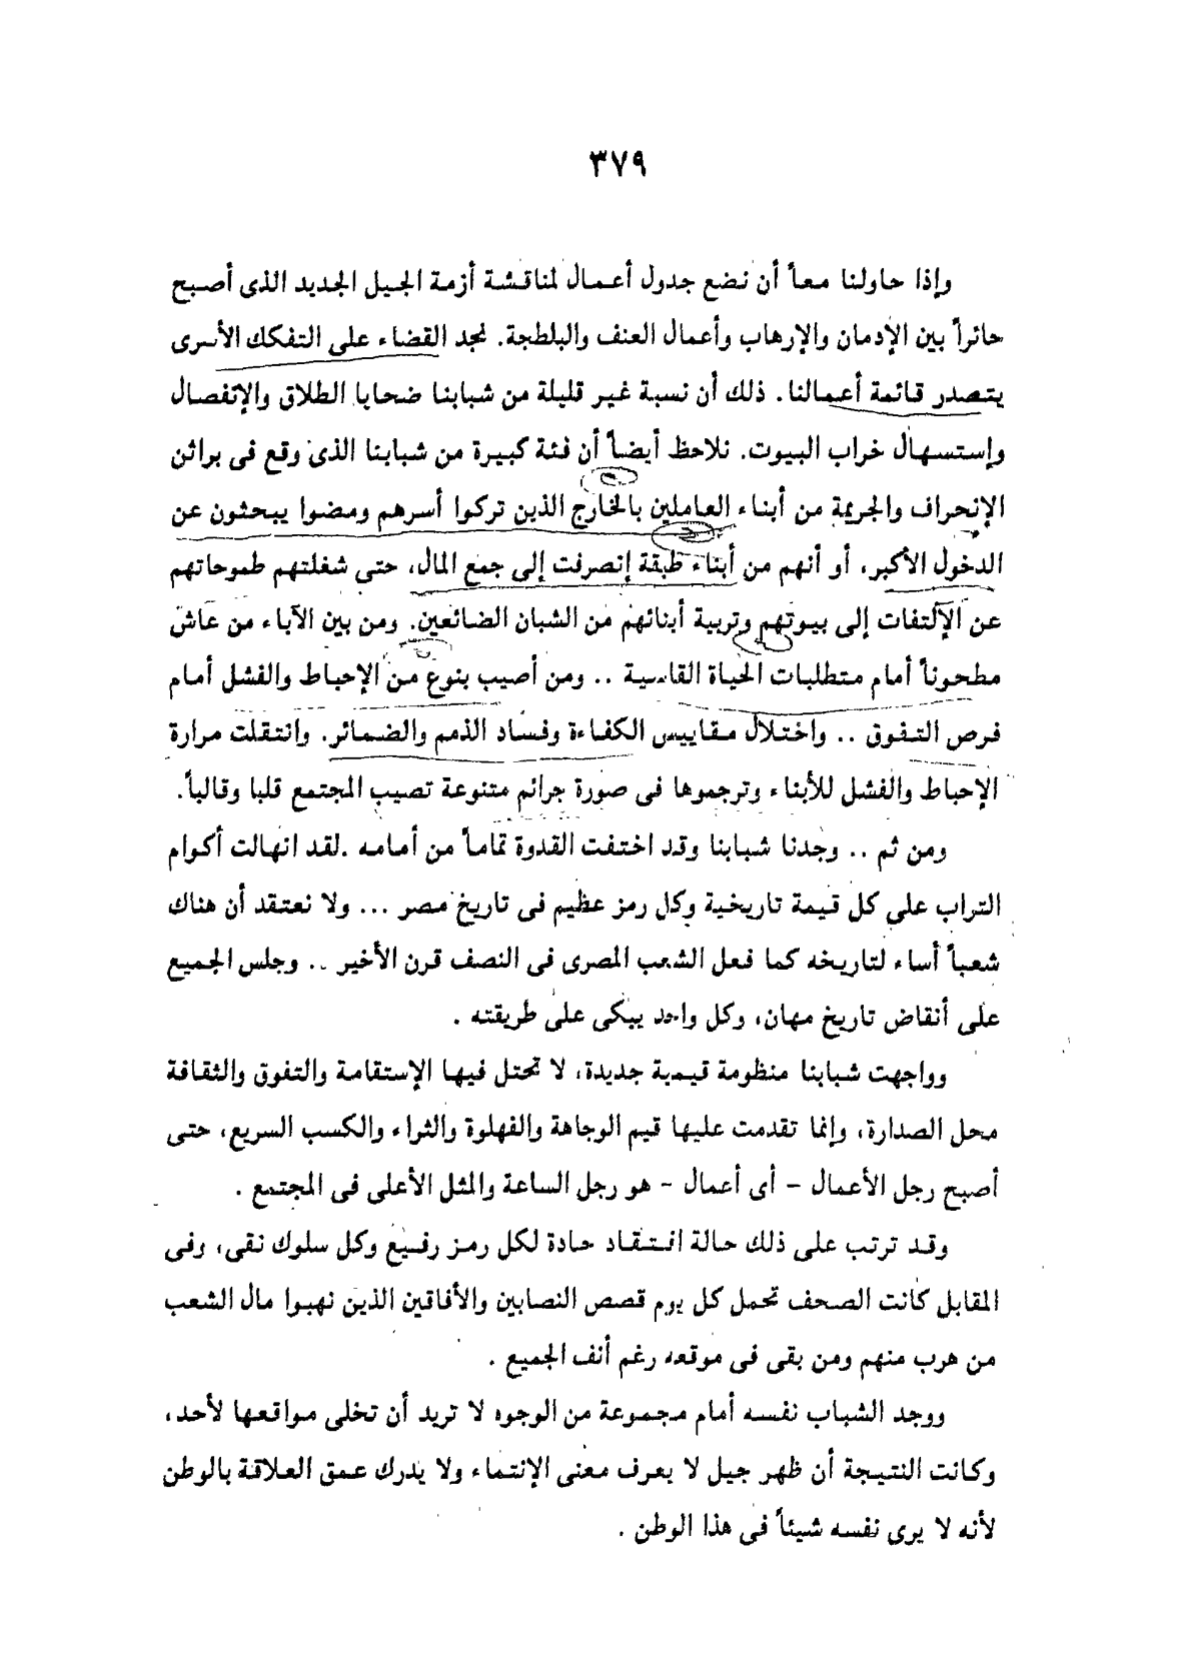 ٣٧٩
وإذا حاولنا معاً أن نضع جدول أعمال لمناقشة أزمة الجيل الجديد الذى أصبح
حائراً بين الإدمان والإرهاب وأعمال العنف والبلطجة. نجد القضاء على التفكك الأسرى
يتصدر قائمة أعمالنا. ذلك أن نسبة غير قليلة من شبابنا ضحايا الطلاق والإنفصال
وإستسهال خراب البيوت. نلاحظ أيضاً أن فئة كبيرة من شبابنا الذى وقع فى براثن
الإنحراف والجريمة من أبناء العاملين بالخارج الذين تركوا أسرهم ومضوا يبحثون عن
الدخول الأكبر، أو أنهم من أبناء طبقة إنصرفت إلى جمع المال، حتى شغلتهم طموحاتهم
عن الألتفات إلى بيوتهم وتربية أبنائهم من الشبان الضائعين. ومن بين الآباء من عاش
مطحوناً أمام متطلبات الحياة القاسية .. ومن أصيب بنوع من الإحباط والفشل أمام
فرص التفوق .. واختلال مقاييس الكفاءة وفساد الذمم والضمائر. وانتقلت مرارة
الإحباط والفشل للأبناء وترجموها فى صورة جرائم متنوعة تصيب المجتمع قلبا وقالباً.
ومن ثم .. وجدنا شبابنا وقد اختفت القدوة تماماً من أمامه .لقد انهالت أكوام
التراب على كل قيمة تاريخية وكل رمز عظيم فى تاريخ مصر ... ولا نعتقد أن هناك
شعباً أساء لتاريخه كما فعل الشعب المصرى فى النصف قرن الأخير .. وجلس الجميع
على أنقاض تاريخ مهان، وكل واحد يبكى على طريقته .
وواجهت شبابنا منظومة قيمية جديدة، لا تحتل فيها الإستقامة والتفوق والثقافة
محل الصدارة، وإنما تقدمت عليها قيم الوجاهة والفهلوة والثراء والكسب السريع، حتى
أصبح رجل الأعمال - أى أعمال - هو رجل الساعة والمثل الأعلى فى المجتمع .
وقد ترتب على ذلك حالة افتقاد حادة لكل رمز رفيع وكل سلوك نقى، وفى
المقابل كانت الصحف تحمل كل يوم قصص النصابين والأفاقين الذين نهبوا مال الشعب
من هرب منهم ومن بقى فى موقعه رغم أنف الجميع .
ووجد الشباب نفسه أمام مجموعة من الوجوه لا تريد أن تخلى مواقعها لأحد،
وكانت النتيجة أن ظهر جيل لا يعرف معنى الإنتماء ولا يدرك عمق العلاقة بالوطن
لأنه لا يرى نفسه شيئاً فى هذا الوطن .